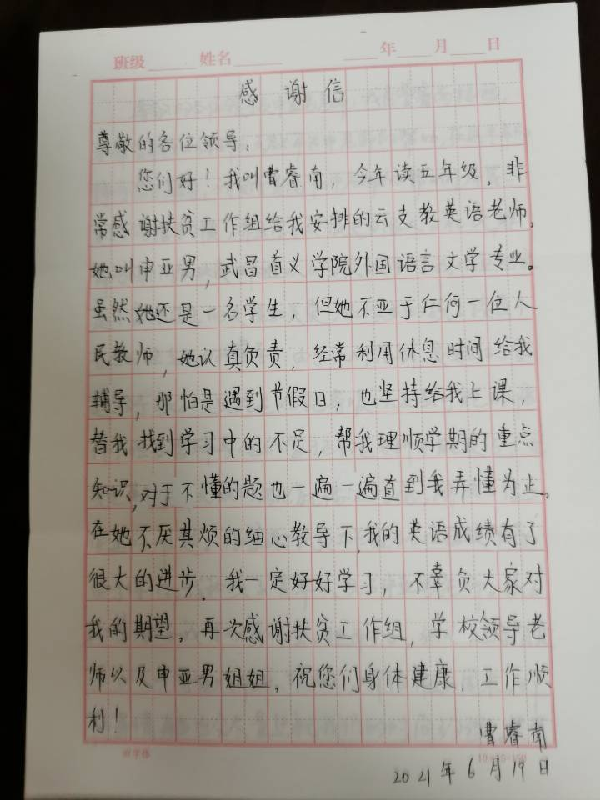 班级 姓名 年 月 日
感谢信
尊敬的各位领导：
您们好！我叫曹睿南，今年读五年级，非
常感谢扶贫工作组给我安排的云支教英语老师，
她叫申亚男，武昌首义学院外国语言文学专业。
虽然她还是一名学生，但她不亚于任何一位人
民教师，她认真负责，经常利用休息时间给我
辅导，那怕是遇到节假日，也坚持给我上课，
替我找到学习中的不足，帮我理顺学期的重点
知识，对于不懂的题也一遍一遍直到我弄懂为止。
在她不厌其烦的细心教导下，我的英语成绩有了
很大的进步，我一定好好学习，不辜负大家对
我的期望，再次感谢扶贫工作组，学校领导老
师以及申亚男姐姐，祝您们身体健康，工作顺
利！
曹睿南
2021年6月19日